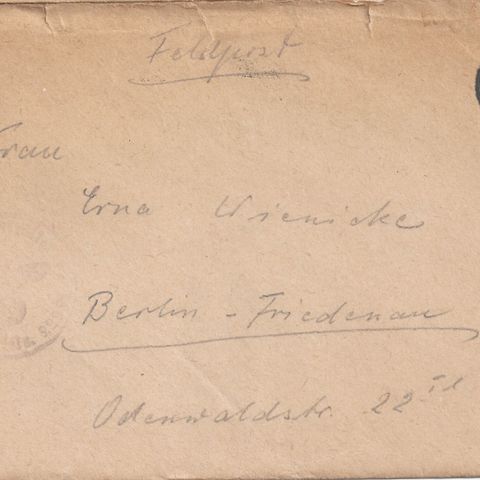 Feldpost
Frau
Erna Wienicke
Berlin - Friedenau
Odenwaldstr. 22 II